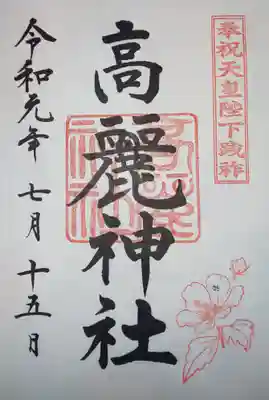 奉祝天皇陛下践祚
高麗神社
令和元年 七月 十五日